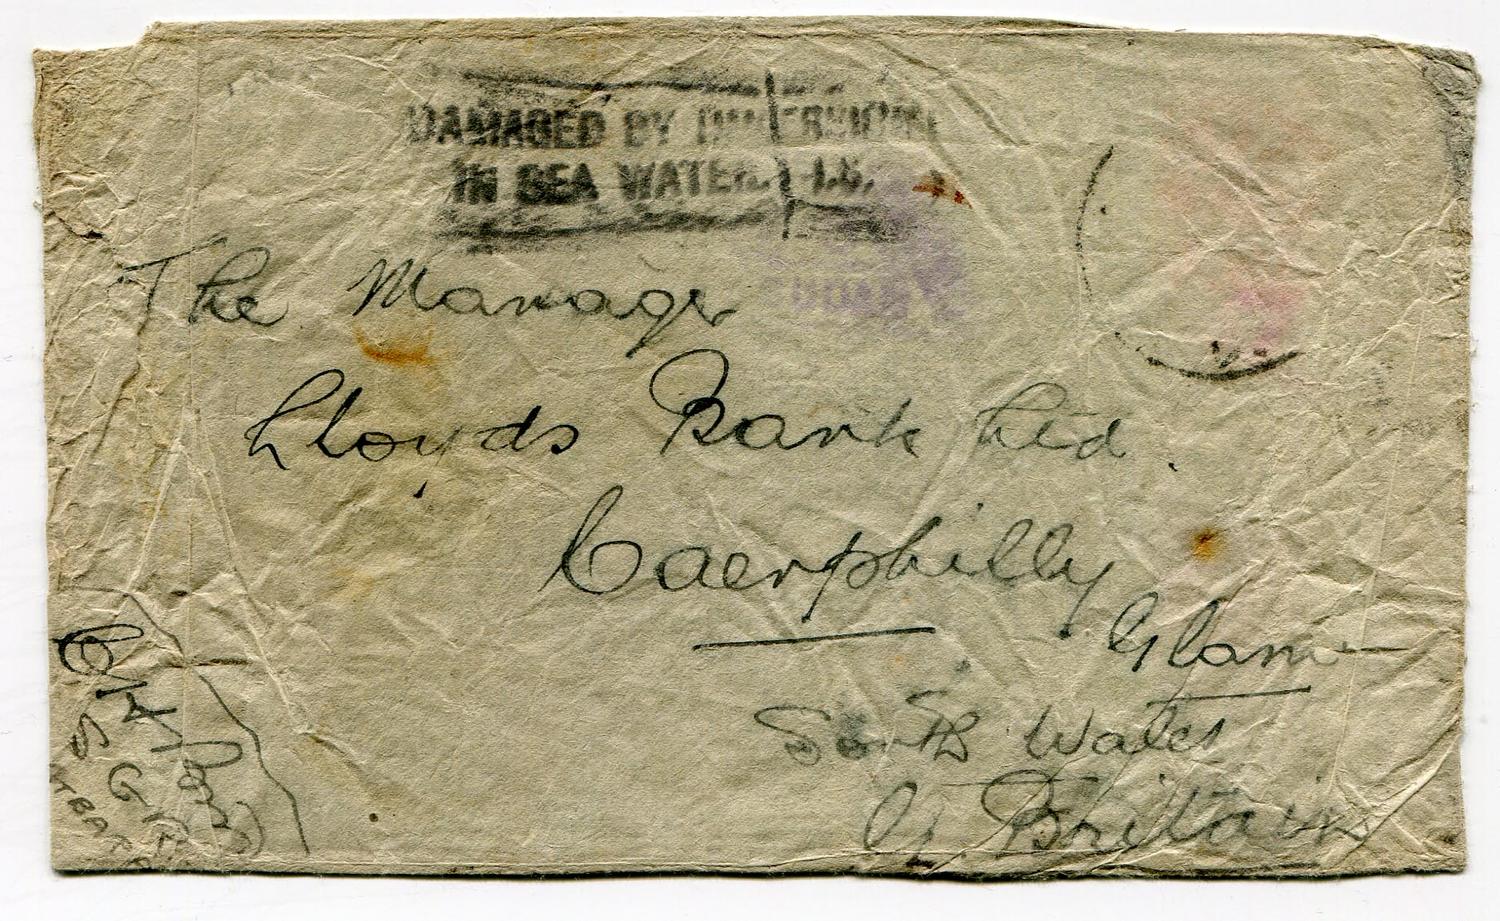 DAMAGED BY IMMERSION
IN SEA WATER. I.S.
The Manager
Lloyds Bank Ltd.
Caerphilly
Glam
South Wales
Gt Britain